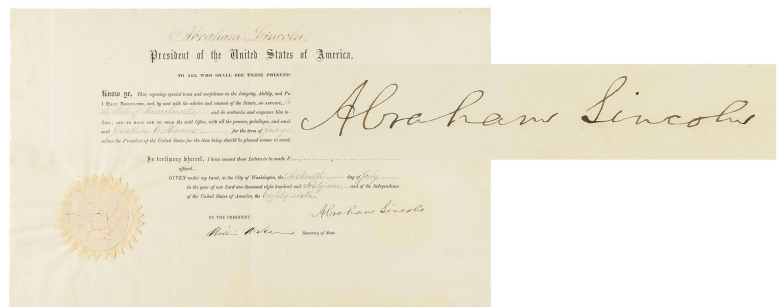 Abraham Lincoln,
President of the United States of America,
TO ALL WHO SHALL SEE THESE PRESENTS
Know ye, That, reposing special trust and confidence in the Integrity, Ability, and
I HAVE NOMINATED, and, by and with the advice and consent of the Senate, DO APPOINT,
the State of Massachusetts and do authorize and empower him to
LAW; AND TO HAVE AND TO HOLD the said Office, with all the powers, privileges, and
said Jonathan for the term of four
unless the President of the United States for the time being should be pleased sooner to
In testimony whereof, I have caused these Letters to be made
affixed.
GIVEN under my hand, at the City of Washington, the day of July
in the year of our Lord one thousand eight hundred and Sixty one and of the Independence
of the United States of America, the Eighty Sixth.
Abraham Lincoln
BY THE PRESIDENT:
Secretary of State.
Abraham Lincoln